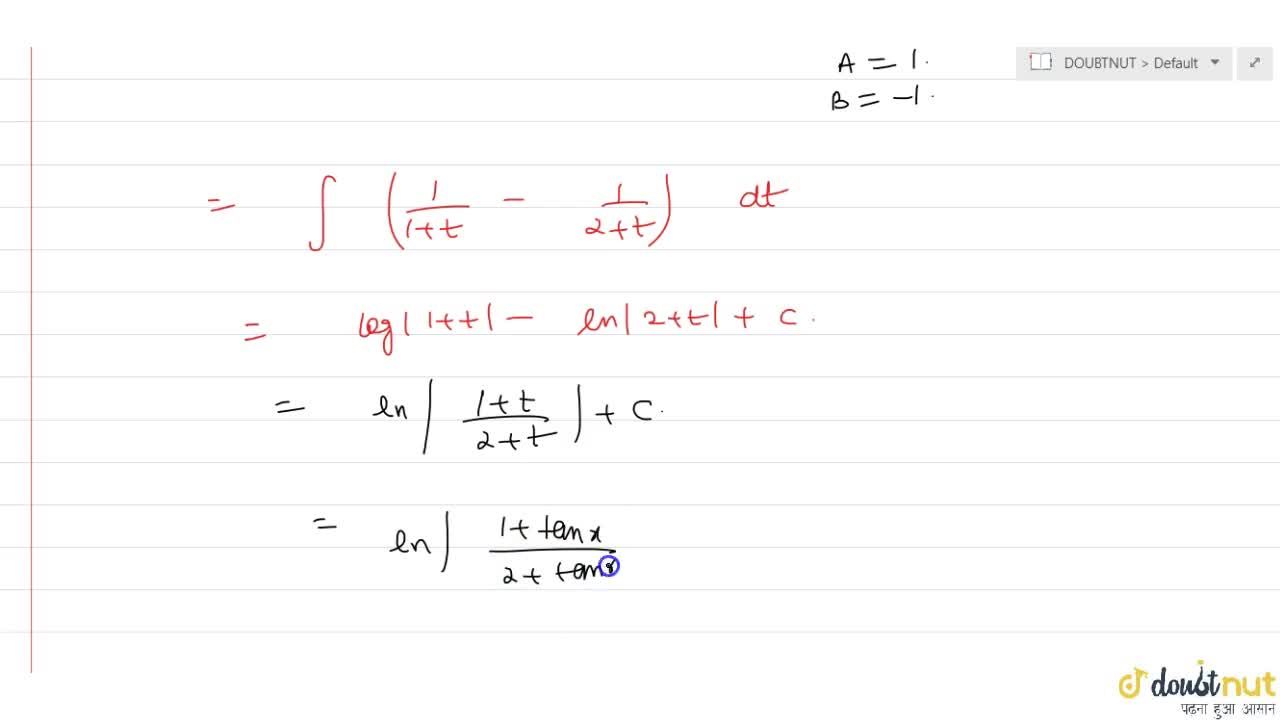 A = 1.
DOUBTNUT > Default
B = -1.
= ∫ (1/(1+t) - 1/(2+t)) dt
= log|1+t| - ln|2+t| + c.
= ln|(1+t)/(2+t)| + c.
= ln|(1+tanx)/(2+tanx)
doubtnut
पढ़ना हुआ आसान